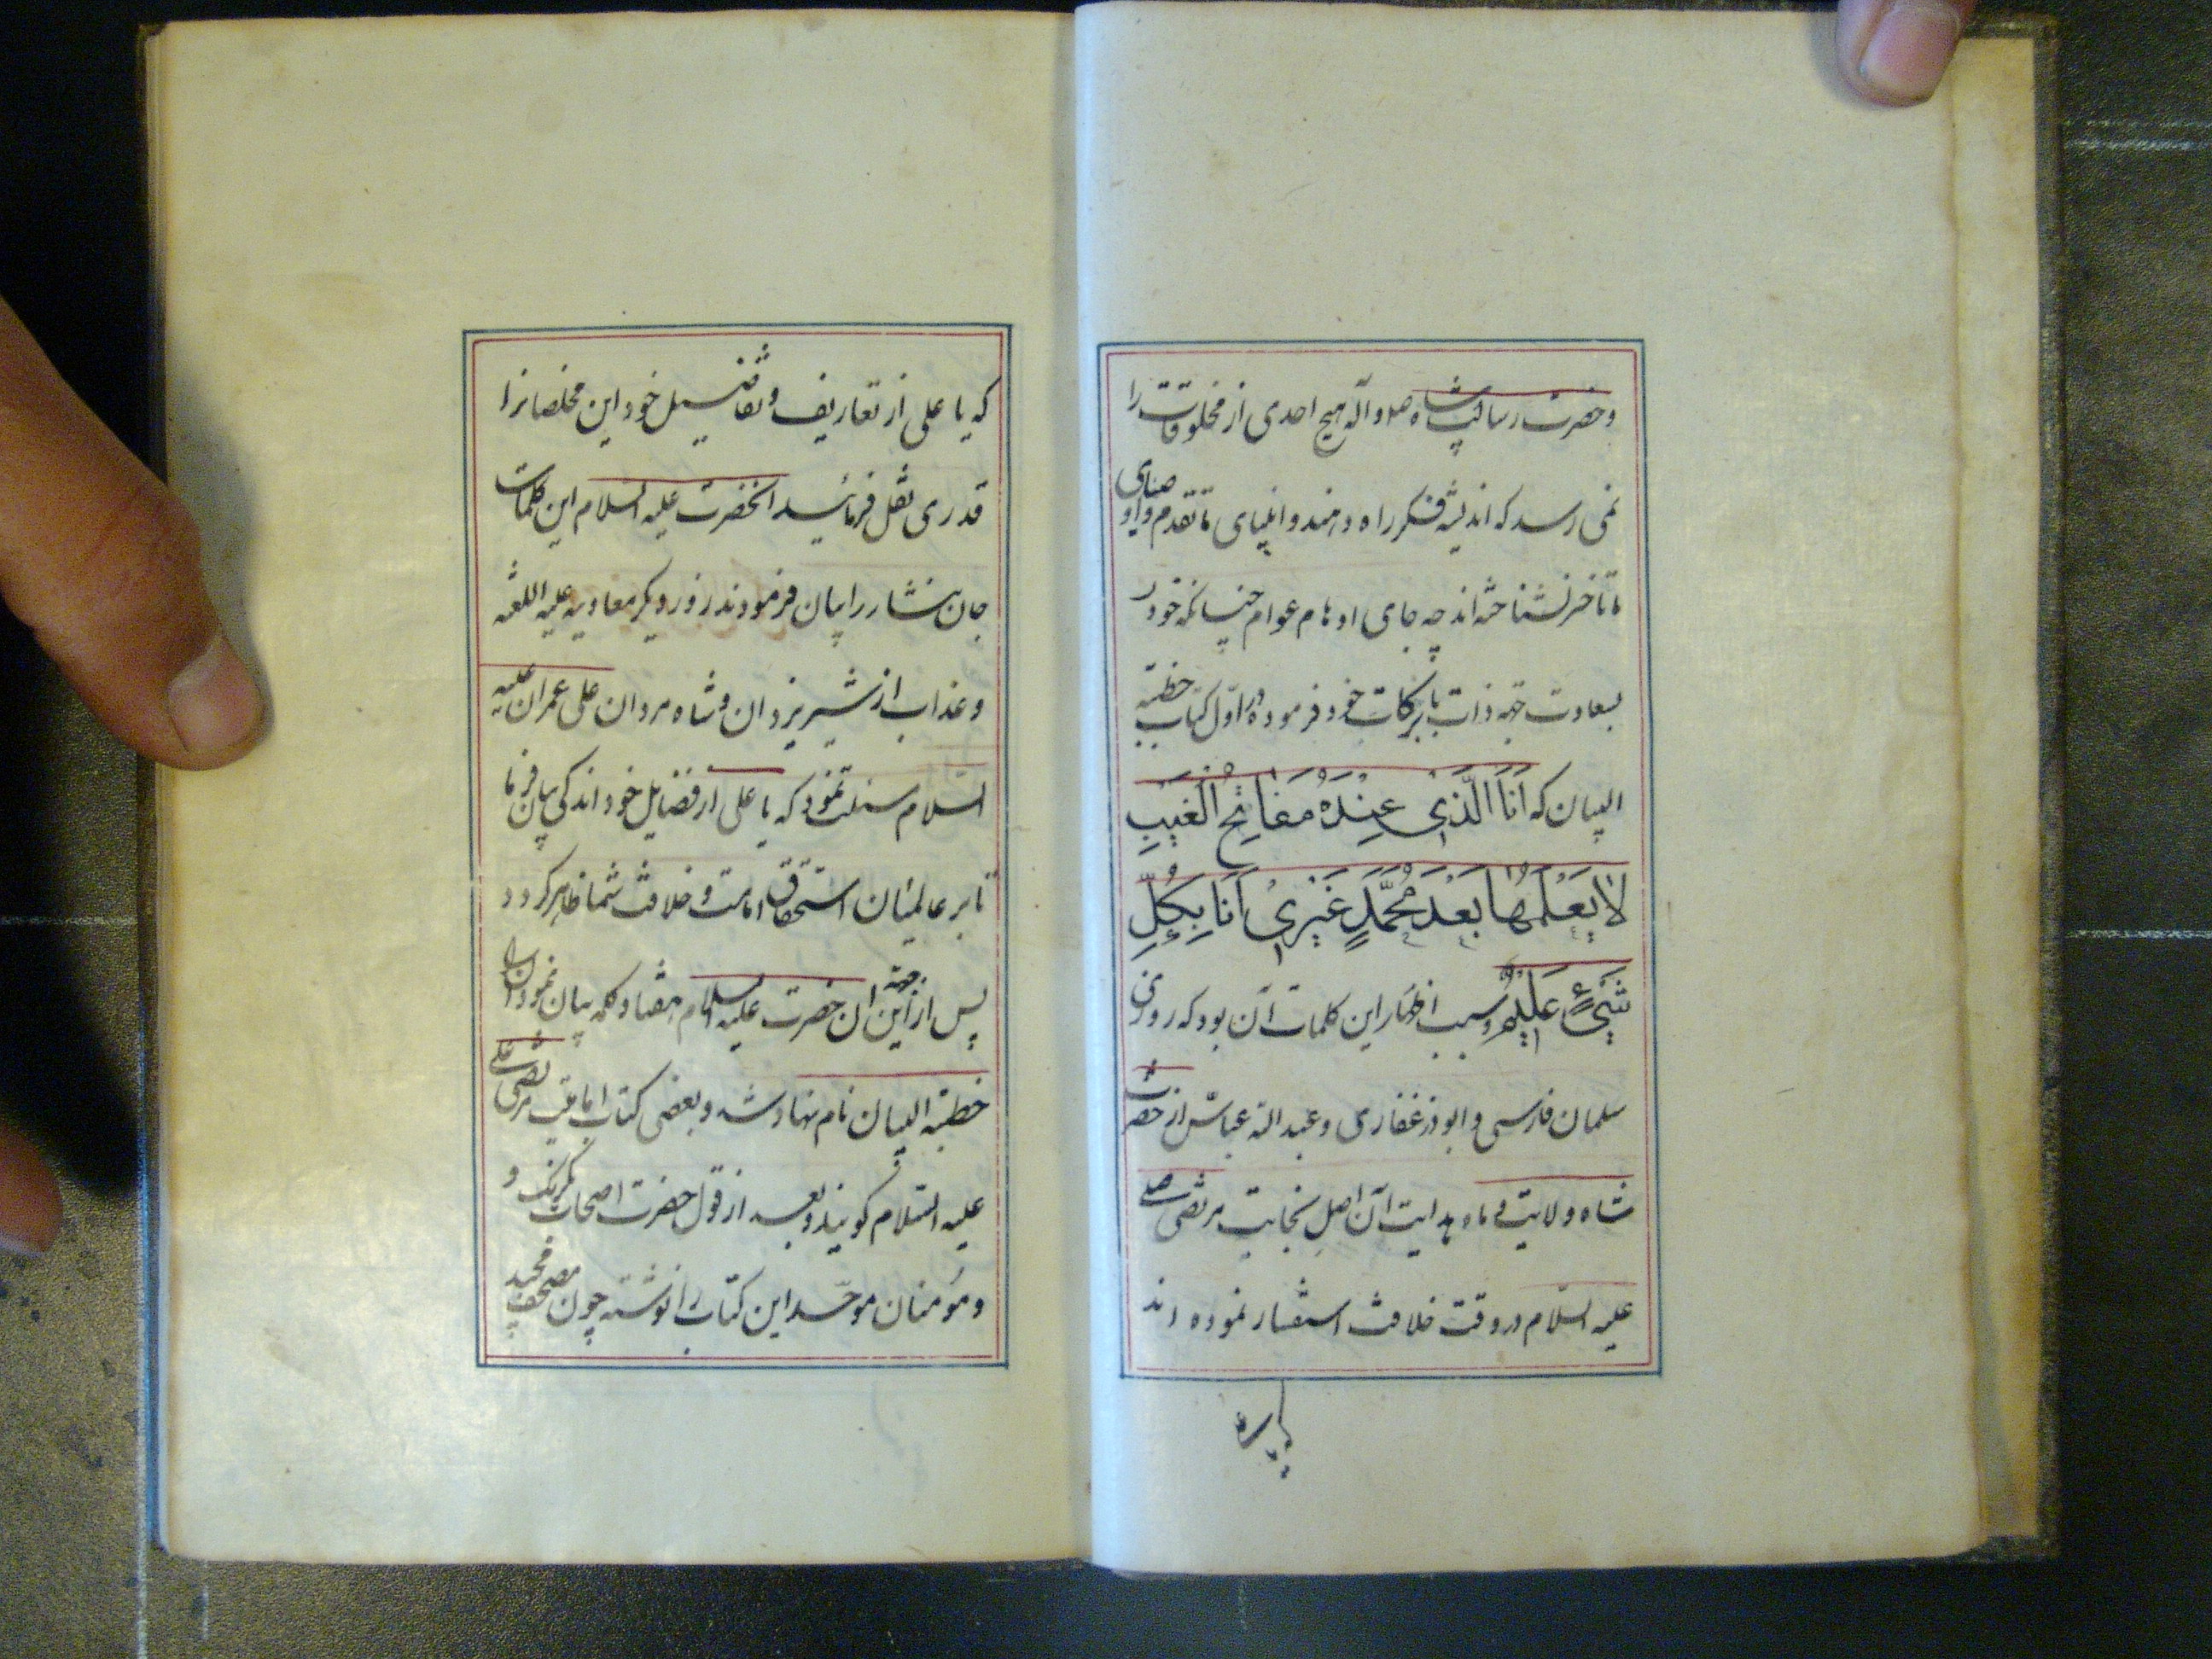 و حضرت رسالت پناه صلم و اله هیچ احدی از مخلوقات را
نمی رسد که اندیشه فکر راه دهند و انبیای ما تقدم و اوصیای
ما تاخر نشناخته اند چه جای اوهام عوام چنانکه خود
بسعادت جهة ذات با برکات خود فرموده در اول کتاب خطبة
البیان که اَنَا الَّذی عِنْدَهُ مَفَاتِحُ الْغَیْبِ
لَا یَعْلَمُهَا بَعْدَ مُحَمَّدٍ غَیْرِی اَنَا بِکُلِّ
شَیْءٍ عَلِیْمٌ و سبب اظهار این کلمات آن بود که روزی
سلمان فارسی و ابوذر غفاری و عبد الله عباس از حضرت
شاه ولایت و ماه هدایت آن اصل نجابت مرتضی علی
علیه السلام در وقت خلافت استفسار نموده اند
که یا علی از تعاریف و تفاضیل خود این مخلصانرا
قدری نقل فرمائید انحضرت علیه السلام این کلمات
جان نثار را بیان فرمودند روز دیگر معاویه علیه اللعنه
و عذاب از شیر یزدان و شاه مردان علی عمران علیه
السلام سئلت نمود که یا علی از فضایل خود اندکی بیان فرما
تا بر عالمیان استحقاق امامت و خلافت شما ظاهر کردد
پس از این جهة ان حضرت علیه السلام هفتاد کلمه بیان نمود
خطبة البیان نام نهاد شد و بعضی کتاب مرتضی علی
علیه السلام کویند و بعد از قول حضرت اصحاب یکرنک و
و مؤمنان موحد این کتاب را نوشته چون مصحف مجید